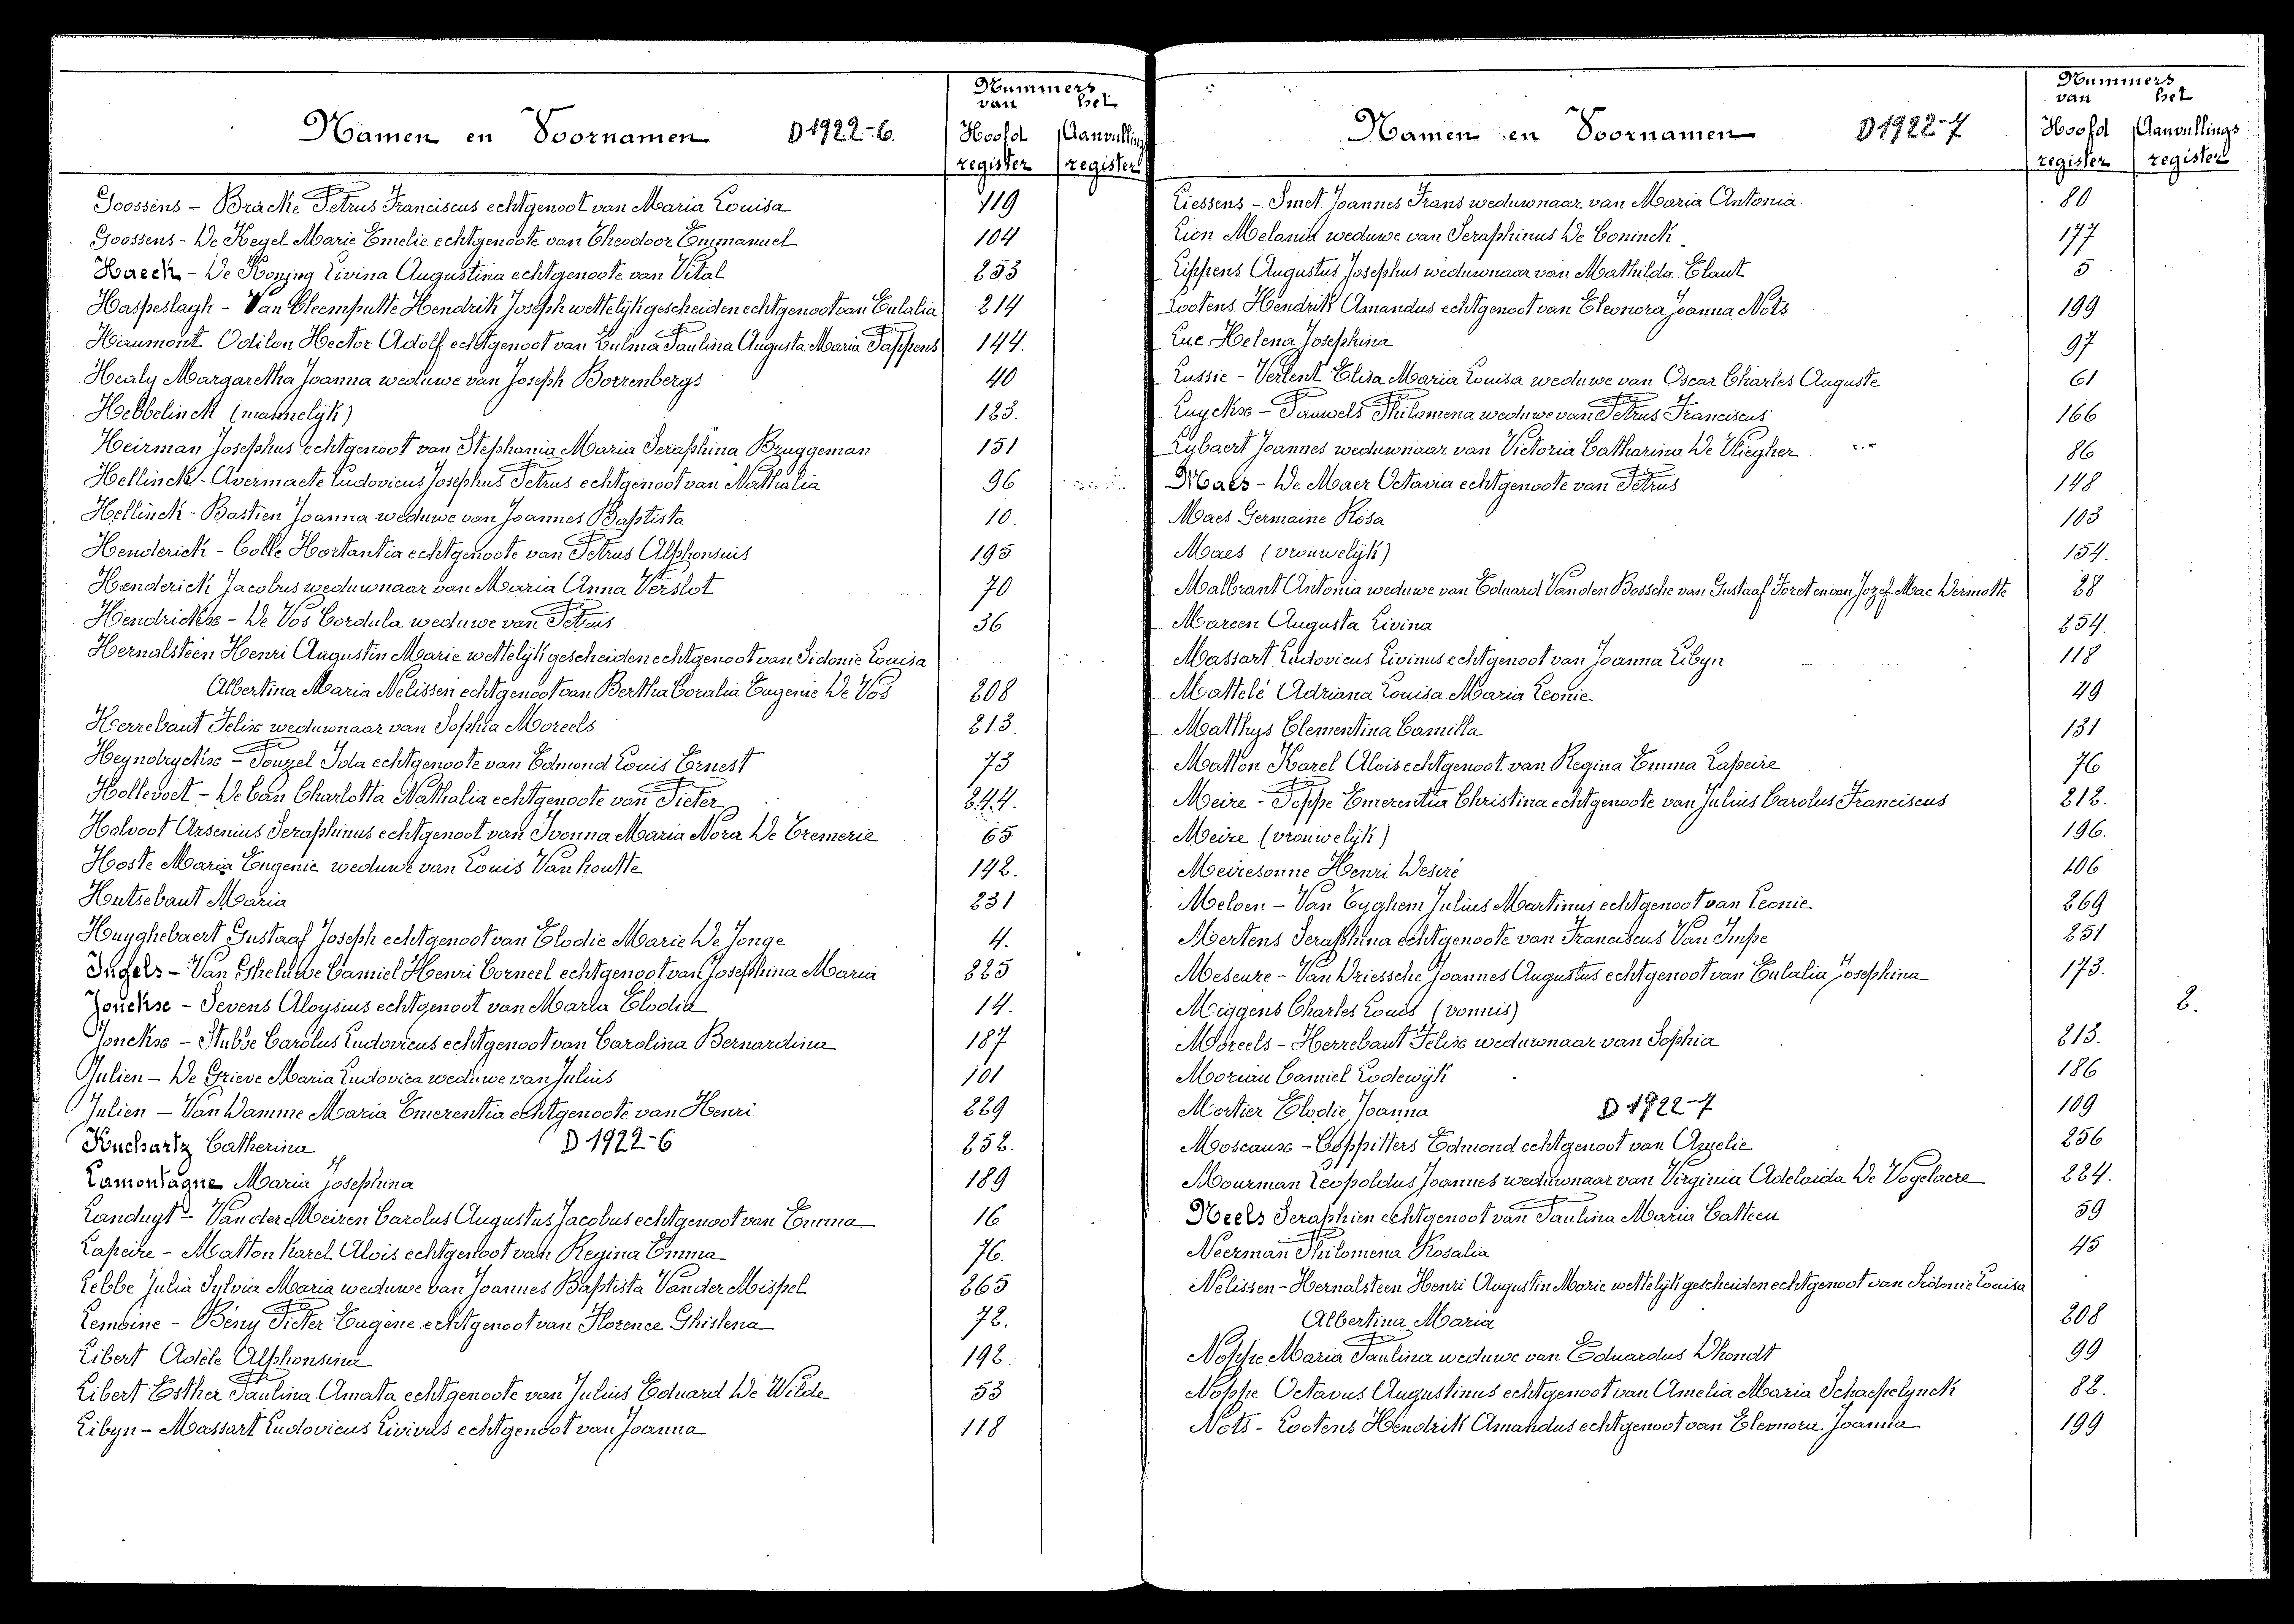 Nummers
van het
Namen en Voornamen D 1922-6. Hoofd Aanvullings
register register
Goossens - Bracke Petrus Franciscus echtgenoot van Maria Louisa 119
Goossens - De Kegel Marie Emelie echtgenoote van Theodoor Emmanuel 104
Haeck - De Koning Livina Augustina echtgenoote van Vital 253
Haspeslagh - Van Cleemputte Hendrik Joseph wettelijk gescheiden echtgenoot van Eulalia 214
Haumont Odilon Hector Adolf echtgenoot van Zulma Paulina Augusta Maria Pappens 144.
Healy Margaretha Joanna weduwe van Joseph Borrenbergs 40
Hebbelinck (mannelijk) 123.
Heirman Josephus echtgenoot van Stephania Maria Seraphina Bruggeman 151
Hellinck - Avermaete Ludovicus Josephus Petrus echtgenoot van Nathalia 96
Hellinck - Bastien Joanna weduwe van Joannes Baptista 10.
Henderick - Colle Hortantia echtgenoote van Petrus Alphonsuis 195
Henderick Jacobus weduwnaar van Maria Anna Verslot 70
Hendrickx - De Vos Cordula weduwe van Petrus 36
Hernalsteen Henri Augustin Marie wettelijk gescheiden echtgenoot van Sidonie Louisa
Albertina Maria Nelissen echtgenoot van Bertha Coralia Eugenie De Vos 208
Herrebaut Felix weduwnaar van Sophia Moreels 213.
Heyndryckx - Pouzel Ida echtgenoote van Edmond Louis Ernest 73
Hollevoet - De Can Charlotta Nathalia echtgenoote van Pieter 244.
Holvoot Arsenius Seraphinus echtgenoot van Ivonna Maria Nora De Cremerie 65
Hoste Maria Eugenie weduwe van Louis Vanhoutte 142.
Hutsebaut Maria 231
Huyghebaert Gustaaf Joseph echtgenoot van Elodie Marie De Jonge 4.
Ingels - Van Gheluwe Camiel Henri Corneel echtgenoot van Josephina Maria 225
Jonckx - Sevens Aloysius echtgenoot van Maria Elodia 14.
Jonckx - Stubbe Carolus Ludovicus echtgenoot van Carolina Bernardina 187
Julien - De Grieve Maria Ludovica weduwe van Julius 101
Julien - Van Damme Maria Emerentia echtgenoote van Henri 229
Kuchartz Catherina D 1922-6 252.
Lamontagne Maria Josephina 189
Landuyt - Van der Meiren Carolus Augustus Jacobus echtgenoot van Emma 16
Lapeire - Matton Karel Alois echtgenoot van Regina Emma 76.
Lebbe Julia Sylvia Maria weduwe van Joannes Baptista Van der Mispel 265
Lemoine - Bény Pieter Eugène echtgenoot van Florence Ghislena 72.
Libert Adèle Alphonsina 192.
Libert Esther Paulina Amata echtgenoote van Julius Eduard De Wilde 53
Libyn - Massart Ludovicus Livinus echtgenoot van Joanna 118
Nummers
van het
Namen en Voornamen D 1922-7 Hoofd Aanvullings
register register
Liessens - Smet Joannes Frans weduwnaar van Maria Antonia 80
Lion Melania weduwe van Seraphinus De Coninck 177
Lippens Augustus Josephus weduwnaar van Mathilda Claut 5
Lootens Hendrik Amandus echtgenoot van Eleonora Joanna Nots 199
Luc Helena Josephina 97
Lussie - Verlent Elisa Maria Louisa weduwe van Oscar Charles Auguste 61
Luyckx - Pauwels Philomena weduwe van Petrus Franciscus 166
Lybaert Joannes weduwnaar van Victoria Catharina De Vliegher 86
Maes - De Maer Octavia echtgenoote van Petrus 148
Maes Germaine Rosa 103
Maes (vrouwelijk) 154.
Malbrant Antonia weduwe van Eduard Van den Bossche van Gustaaf Foret en van Jozef Mac Dermotte 28
Mareen Augusta Livina 254.
Massart Ludovicus Livinus echtgenoot van Joanna Libyn 118
Mattelé Adriana Louisa Maria Leonie 49
Matthys Clementina Camilla 131
Matton Karel Alois echtgenoot van Regina Emma Lapeire 76
Meire - Poppe Emerentia Christina echtgenoote van Julius Carolus Franciscus 212.
Meire (vrouwelijk) 196.
Meiresonne Henri Desiré 106
Meloen - Van Eyghem Julius Martinus echtgenoot van Leonie 269
Mertens Seraphina echtgenoote van Franciscus Van Impe 251
Meseure - Van Driessche Joannes Augustus echtgenoot van Eulalia Josephina 173.
Miggens Charles Louis (vonnis) 2.
Moreels - Herrebaut Felix weduwnaar van Sophia 213.
Moriau Camiel Lodewijk 186
Mortier Elodie Joanna D 1922-7 109
Moscaux - Coppitters Edmond echtgenoot van Angelie 256
Mourman Leopoldus Joannes weduwnaar van Virginia Adelaida De Vogelaere 224.
Neels Seraphien echtgenoot van Paulina Maria Catteeu 59
Neerman Philomena Rosalia 45
Nelissen - Hernalsteen Henri Augustin Marie wettelijk gescheiden echtgenoot van Sidonie Louisa
Albertina Maria 208
Noppe Maria Paulina weduwe van Eduardus Dhondt 99
Noppe Octavus Augustinus echtgenoot van Amelia Maria Schaepelynck 82.
Nots - Lootens Hendrik Amandus echtgenoot van Eleonora Joanna 199